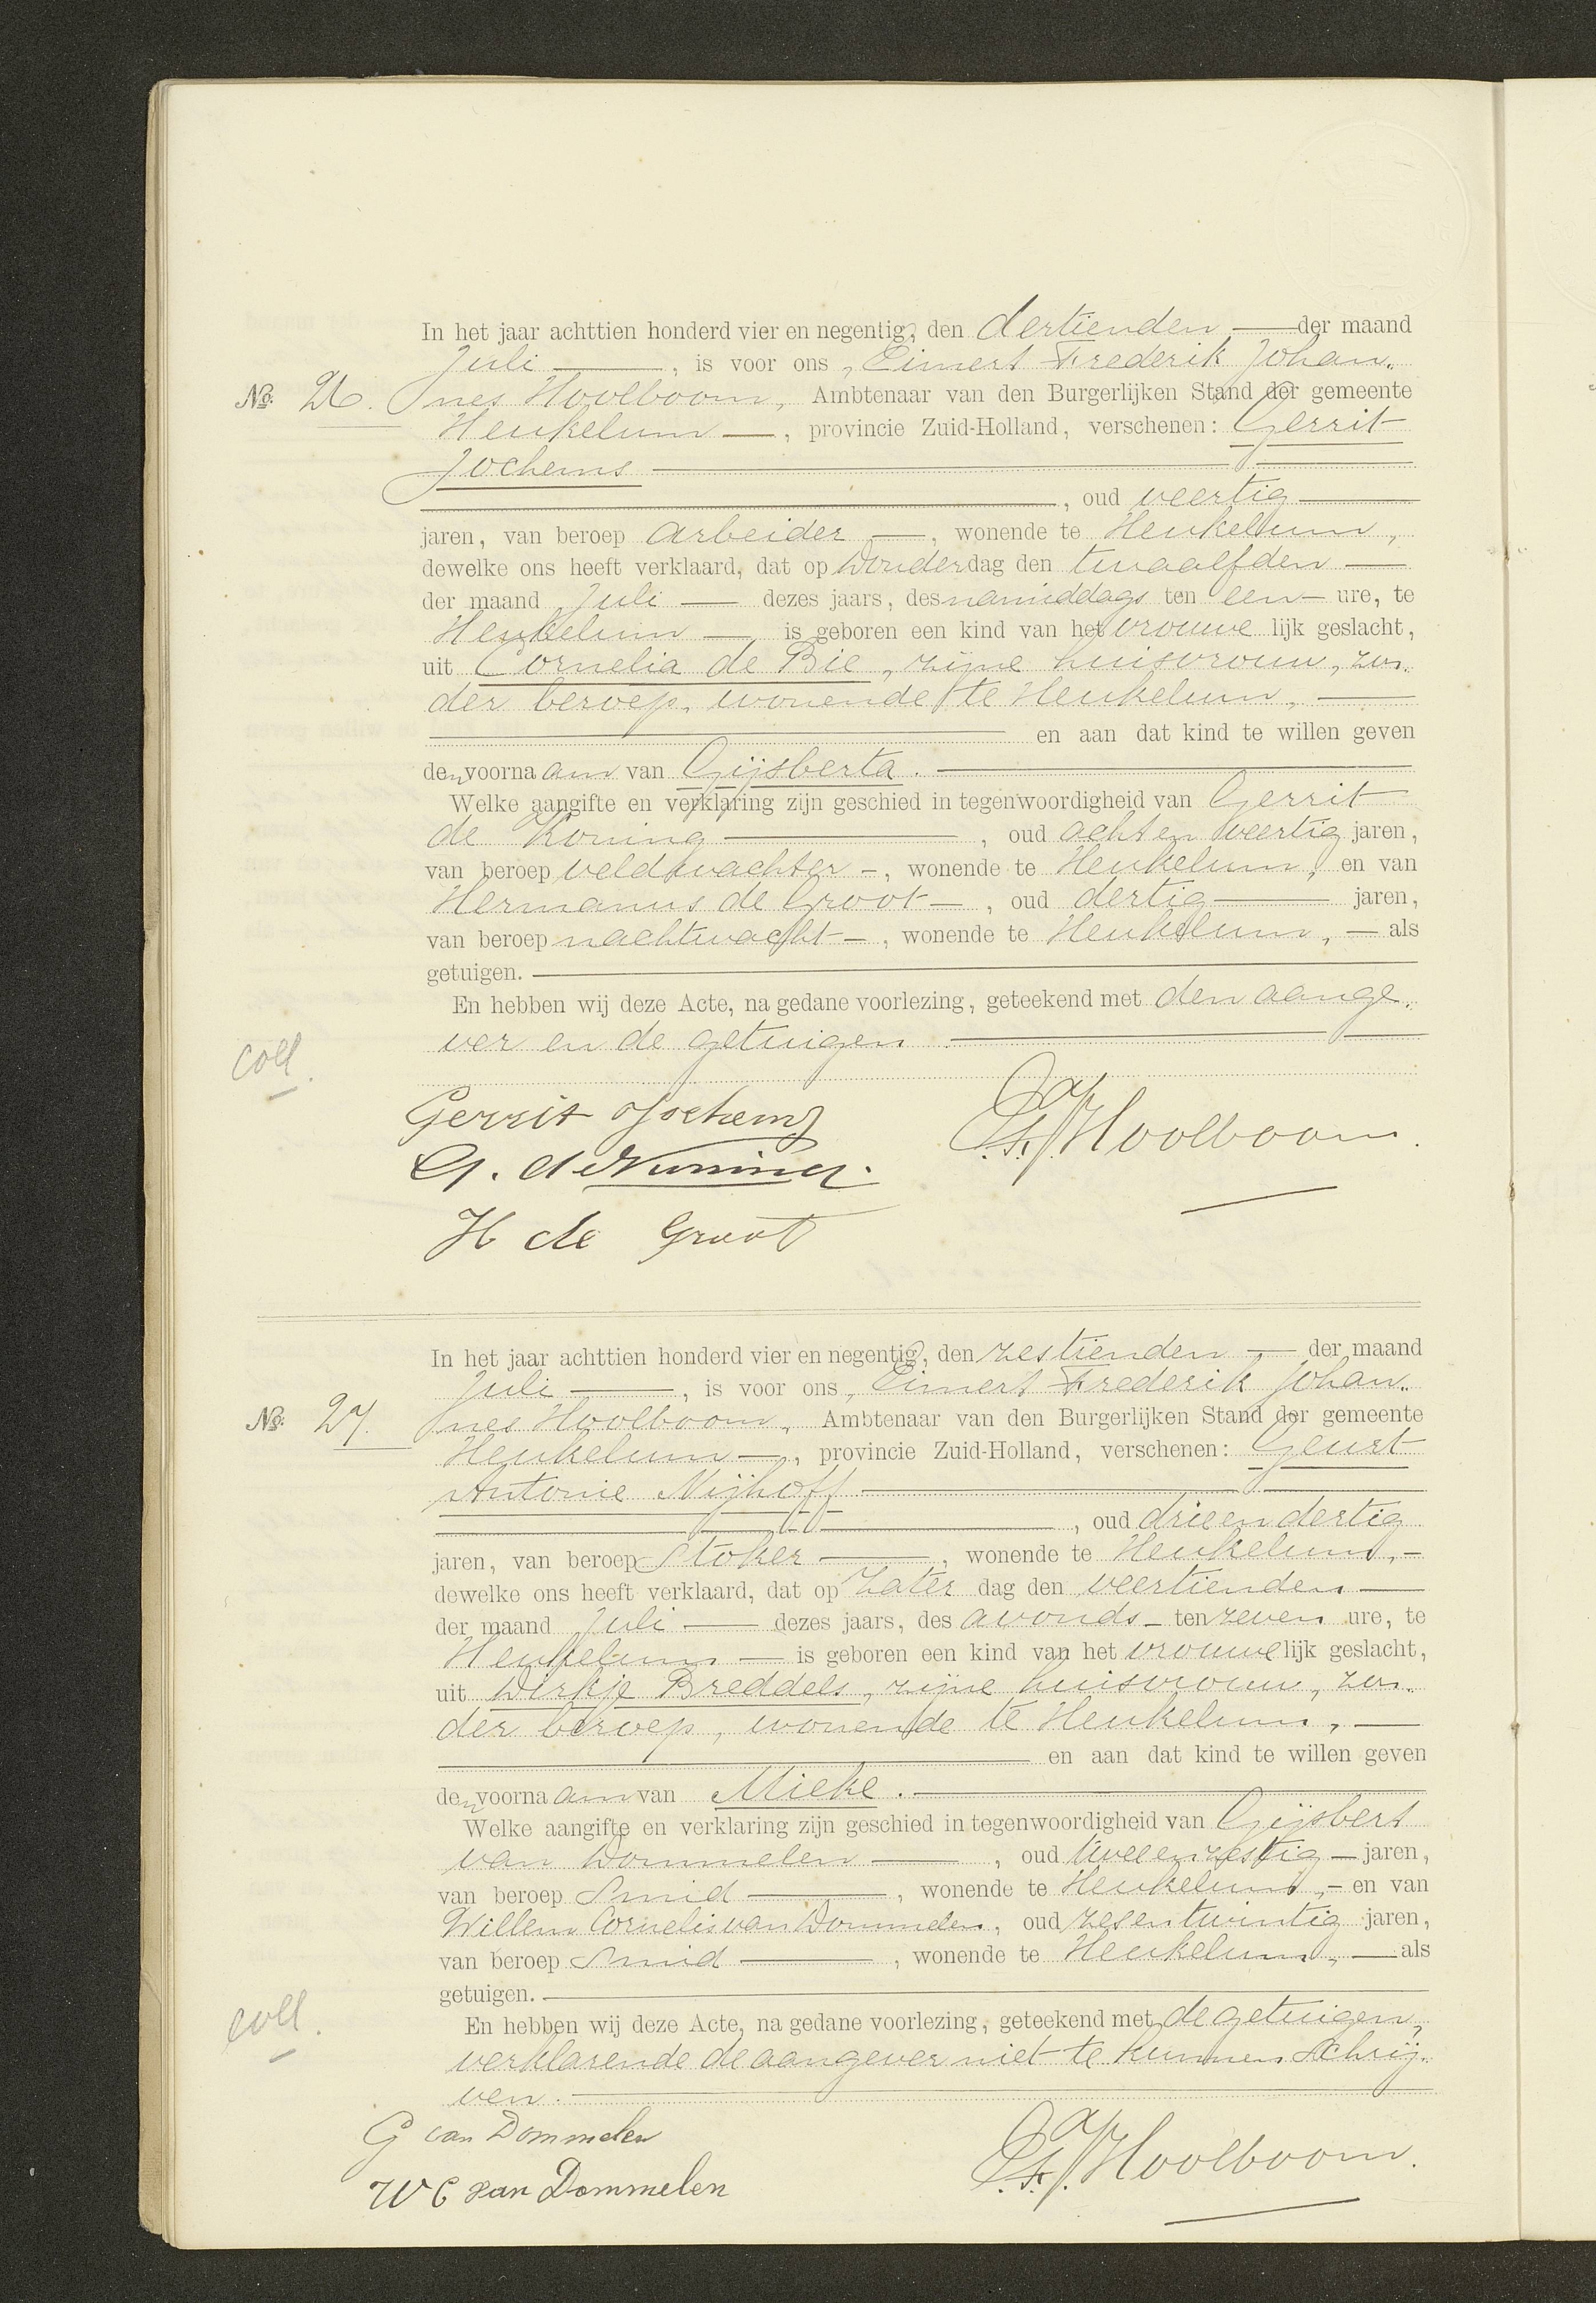 In het jaar achttien honderd vier en negentig, den dertienden der maand
Juli, is voor ons, Eimert Frederik Johan-
No. 26. nes Hoolboom, Ambtenaar van den Burgerlijken Stand der gemeente
Heukelum, provincie Zuid-Holland, verschenen: Gerrit
Jochems
, oud veertig
jaren, van beroep arbeider, wonende te Heukelum,
dewelke ons heeft verklaard, dat op Donderdag den twaalfden
der maand Juli dezes jaars, des namiddags ten een ure, te
Heukelum is geboren een kind van het vrouwelijk geslacht,
uit Cornelia de Bie, zijne huisvrouw, zon-
der beroep, wonende te Heukelum,
en aan dat kind te willen geven
den voornaam van Gijsberta.
Welke aangifte en verklaring zijn geschied in tegenwoordigheid van Gerrit
de Koning, oud achtenveertig jaren,
van beroep veldwachter, wonende te Heukelum, en van
Hermanus de Groot, oud dertig jaren,
van beroep nachtwacht, wonende te Heukelum, als
getuigen.
En hebben wij deze Acte, na gedane voorlezing, geteekend met den aange-
ver en de getuigen.
coll.
Gerrit Jochems
G. de Koning.
Hoolboom.
H de Groot
In het jaar achttien honderd vier en negentig, den zestienden der maand
Juli, is voor ons, Eimert Frederik Johan-
No. 27. nes Hoolboom, Ambtenaar van den Burgerlijken Stand der gemeente
Heukelum, provincie Zuid-Holland, verschenen: Geurt
Antonie Nijhoff
, oud drieendertig
jaren, van beroep Stoker, wonende te Heukelum,
dewelke ons heeft verklaard, dat op Zaterdag den veertienden
der maand Juli dezes jaars, des avonds ten zeven ure, te
Heukelum is geboren een kind van het vrouwelijk geslacht,
uit Dirkje Breddels, zijne huisvrouw, zon-
der beroep, wonende te Heukelum,
en aan dat kind te willen geven
den voornaam van Mieke.
Welke aangifte en verklaring zijn geschied in tegenwoordigheid van Gijsbert
van Dommelen, oud tweeenzestig jaren,
van beroep Smid, wonende te Heukelum, en van
Willem Cornelis van Dommelen, oud zesentwintig jaren,
van beroep Smid, wonende te Heukelum, als
getuigen.
En hebben wij deze Acte, na gedane voorlezing, geteekend met de getuigen,
coll.
verklarende de aangever niet te kunnen Schrij-
ven.
G van Dommelen
Hoolboom.
W C van Dommelen